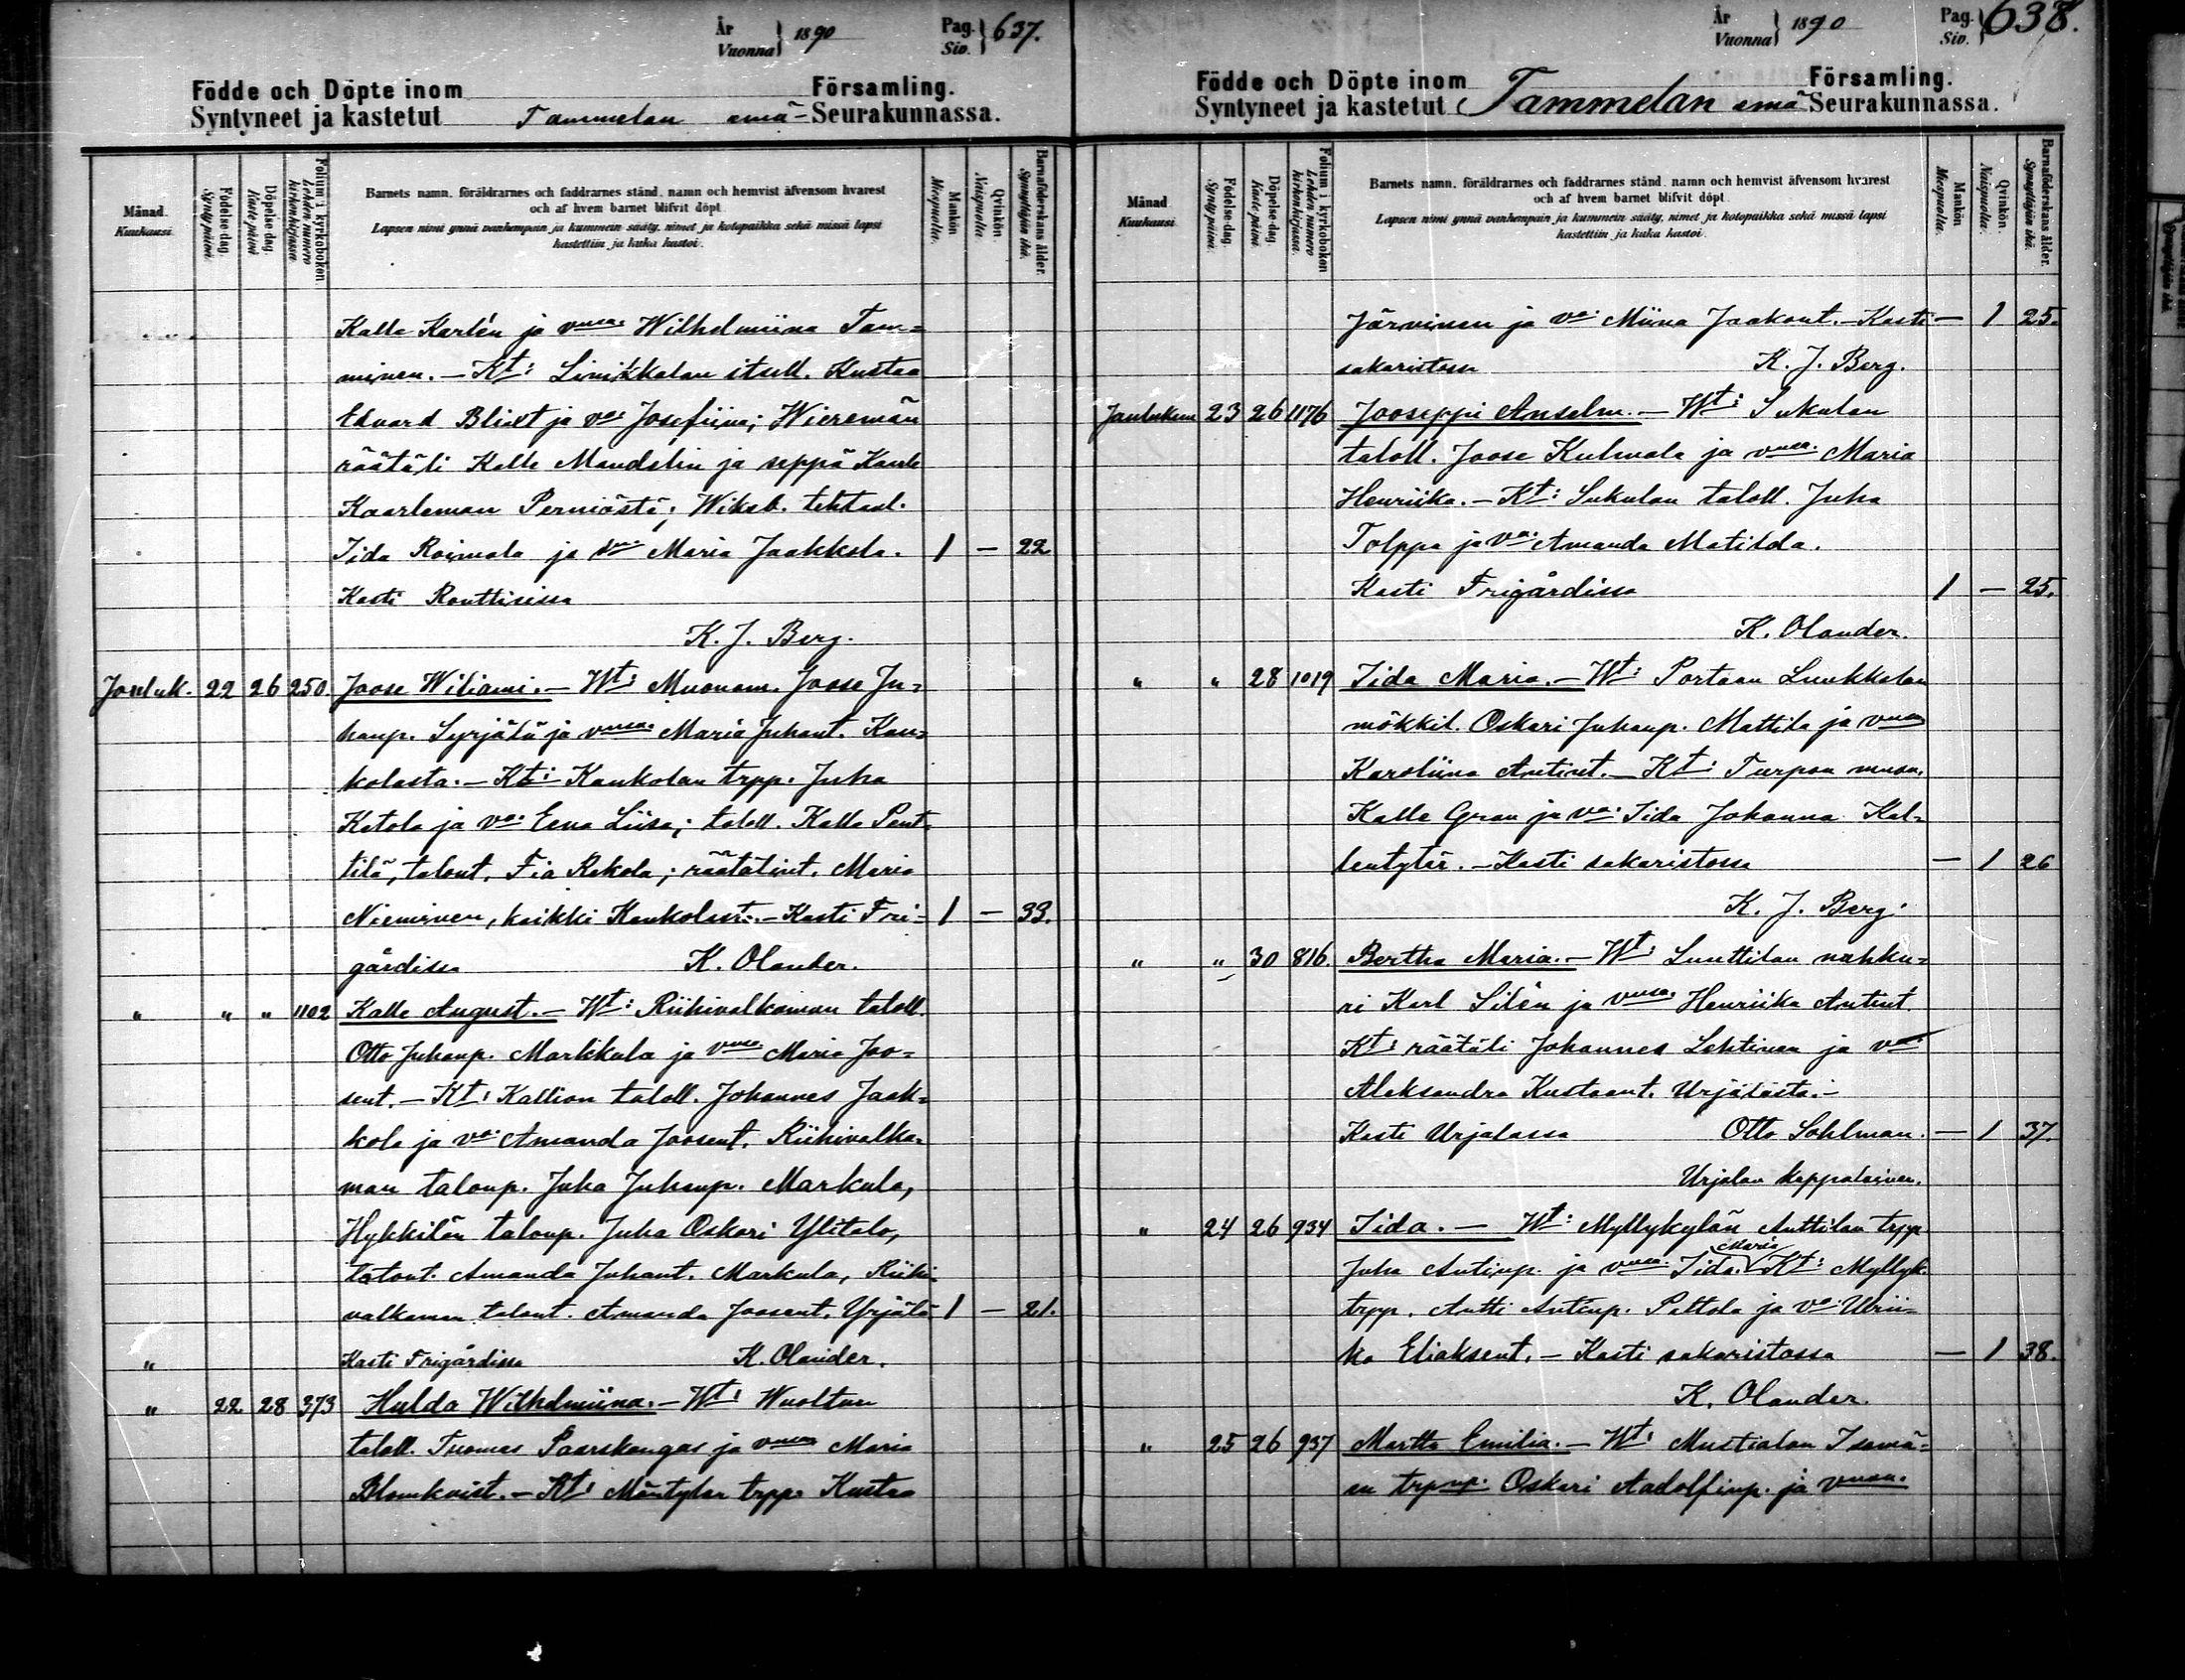 År
Vuonna } 1890 Pag.
Siv. } 637.
Födde och Döpte inom Församling.
Syntyneet ja kastetut Tammelan emä- Seurakunnassa.
Månad. Kuukausi.
Födelse-dag. Syntypäivä.
Döpelse-dag. Kaste-päivä.
Folium i kyrkobokon. Lehden numero kirkonkirjassa.
Barnets namn, föräldrarnes och faddrarnes stånd, namn och hemvist äfvensom hvarest
och af hvem barnet blifvit döpt.
Lapsen nimi ynnä vanhempain ja kummein sääty, nimet ja kotopaikka sekä missä lapsi
kastettiin ja kuka kastoi.
Mankön. Miespuolia.
Qvinkön. Naispuolia.
Barnaföderskans ålder. Synnyttäjän ikä.
Kalle Karlén ja vmsa. Wilhelmiina Tam=
minen. — Kt: Linikkalan itsell. Kustaa
Edvard Blixt ja va: Josefiina; Wieremän
räätäli Kalle Mandelin ja seppä Kaarle
Kaarleman Perniöstä; Wiksb. tehtaal.
Iida Roimola ja Maria Jaakkola. 1 — 22
Kasti Routtisissa
K. J. Berg.
Jouluk. 22 26 250. Joose Wiliami. — Wt: Muonam. Joose Ju=
hanp. Syrjälä ja vmsa. Maria Juhant. Kau=
kolasta. — Kt: Kaukolan trpp. Juha
Katola ja va: Eeva Liisa; taloll. Kalle Pent=
tilä, talont. Fia Rekola; räätälint. Maria
Nieminen, kaikki Kaukolast. — Kasti Fri= 1 — 33.
gårdissa K. Olander.
" " " 1102 Kalle August. — Wt: Riihivalkaman taloll.
Otto Juhanp. Markkula ja vmsa. Maria Joo=
sent. — Kt: Kallion taloll. Johannes Jaak=
kola ja va: Amanda Joosent. Riihivalka=
man talonp. Juha Juhanp. Markula,
Hykkilän talonp. Juha Oskari Ylitalo,
talont. Amanda Juhant. Markula, Riihi=
valkaman talont. Amanda Joosent. Yrjälä 1 — 21.
" Kasti Frigårdissa K. Olander.
" 22 28 373 Hulda Wilhelmiina. — Wt: Wuoltun
taloll. Tuomas Saarikangas ja vmsa Maria
Blomkvist. — Kt: Mäntylan trpp. Kustaa
År
Vuonna } 1890 Pag.
Siv. } 638.
Födde och Döpte inom Församling.
Syntyneet ja kastetut Tammelan emä Seurakunnassa.
Månad. Kuukausi.
Födelse-dag. Syntypäivä.
Döpelse-dag. Kaste-päivä.
Folium i kyrkobokon. Lehden numero kirkonkirjassa.
Barnets namn, föräldrarnes och faddrarnes stånd, namn och hemvist äfvensom hvarest
och af hvem barnet blifvit döpt.
Lapsen nimi ynnä vanhempain ja kummein sääty, nimet ja kotopaikka sekä missä lapsi
kastettiin ja kuka kastoi.
Mankön. Miespuolia.
Qvinkön. Naispuolia.
Barnaföderskans ålder. Synnyttäjän ikä.
Järvinen ja va: Miina Jaakont. — Kasti — 1 25.
sakaristossa K. J. Berg.
Joulukuu 23 26 1176 Jooseppi Anselm. — Wt: Sukulan
taloll. Joose Kulmala ja vmsa. Maria
Henriika. — Kt: Sukulan taloll. Juha
Tolppa ja va: Amanda Matilda.
Kasti Frigårdissa 1 — 25.
K. Olander.
" " 28 1019 Iida Maria. — Wt: Portaan Luukkalan
mökkil. Oskari Juhanp. Mattila ja vmsa
Karoliina Antint. — Kt: Turpon muon.
Kalle Gran ja va: Iida Johanna Kal=
lentytär. — Kasti sakaristossa — 1 26
K. J. Berg.
" " 30 816. Bertha Maria. — Wt: Suuttilan nahku=
ri Karl Silén ja vmsa. Henriika Antint.
Kt: räätäli Johannes Lehtinen ja va:
Aleksandra Kustaant. Urjälästä. —
Kasti Urjalassa Otto Sohlman. — 1 37.
Urjalan kappalainen.
" 24 26 934 Iida. — Wt: Myllykylän Anttilan trpp
Juha Antinp. ja vmsa. Iida Maria Kt: Myllyk.
trpp. Antti Antinp. Peltola ja va: Ulrii=
ka Eliaksent. — Kasti sakaristossa — 1 38.
K. Olander.
" 25 26 937 Martta Emilia. — Wt: Mustialan Isomä=
en trpp. Oskari Aadolfinp. ja vmsa.